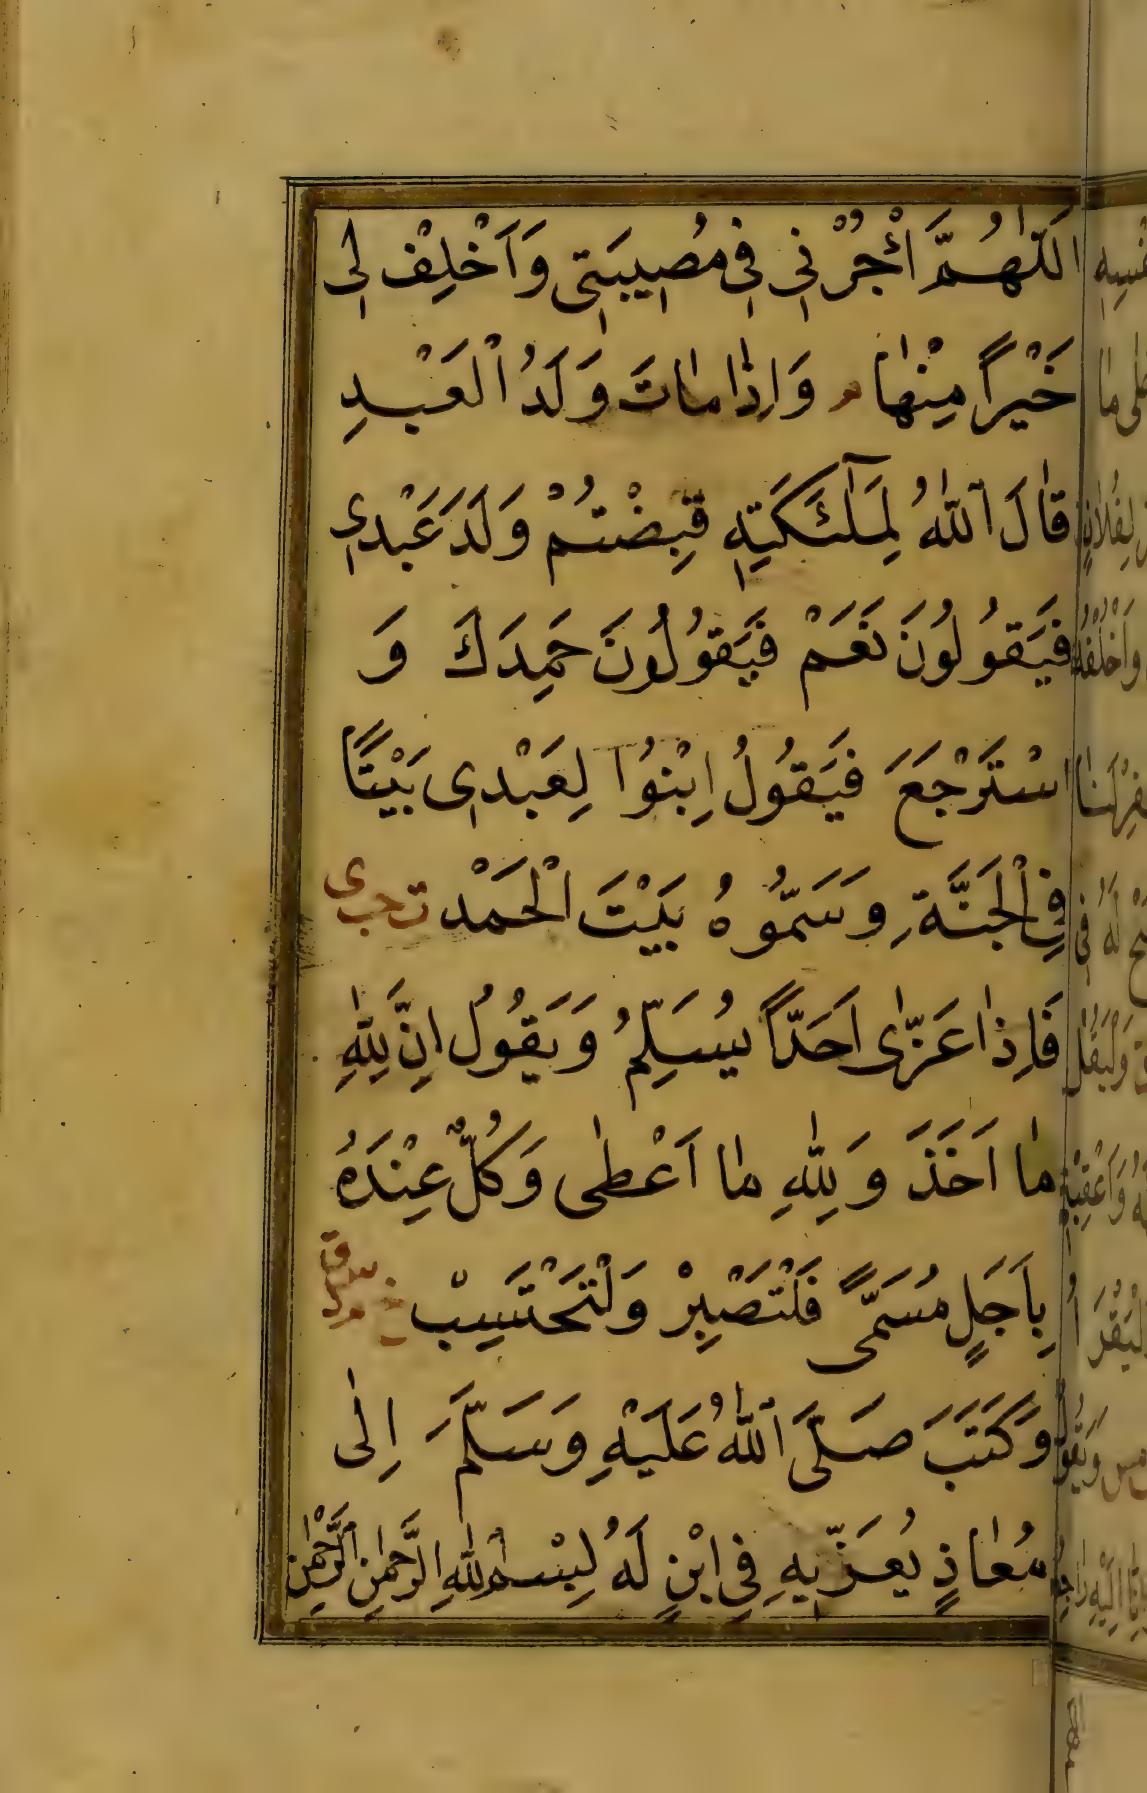 اَللّٰهُمَّ أْجُرْنِي فِي مُصِيبَتِي وَاَخْلِفْ لِي
خَيْراً مِنْهٰا م وَاِذٰا مٰاتَ وَلَدُ الْعَبْدِ
قٰالَ اللّٰهُ لِمَلٰٓئِكَتِهِ قَبِضْتُمْ وَلَدَ عَبْدِي
فَيَقُولُونَ نَعَمْ فَيَقُولُونَ حَمِدَكَ وَ
اسْتَرْجَعَ فَيَقُولُ اِبْنُوا لِعَبْدِي بَيْتًا
فِي الْجَنَّةِ وَسَمُّوهُ بَيْتَ الْحَمْدِ ت حب ى
فَاِذٰا عَزّٰى اَحَدًا يُسَلِّمُ وَيَقُولُ اِنَّ لِلّٰهِ
مٰا اَخَذَ وَلِلّٰهِ مٰا اَعْطٰى وَكُلٌّ عِنْدَهُ
بِاَجَلٍ مُسَمًّى فَلْتَصْبِرْ وَلْتَحْتَسِبْ
وَكَتَبَ صَلَّى اللّٰهُ عَلَيْهِ وَسَلَّمَ اِلٰى
مُعٰاذٍ يُعَزِّيهِ فِي ابْنٍ لَهُ بِسْمِ اللّٰهِ الرَّحْمٰنِ الرَّحِيمِ